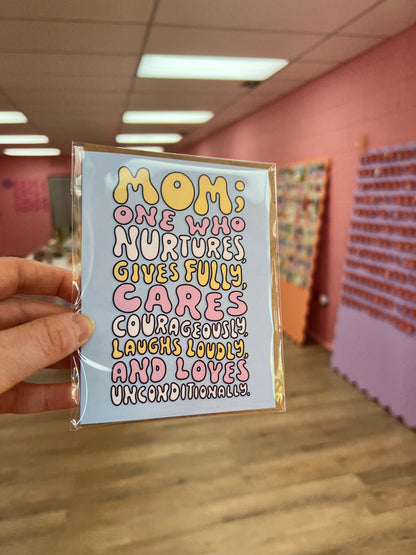 MOM;
ONE WHO
NURTURES,
GIVES FULLY,
CARES
COURAGEOUSLY,
LAUGHS LOUDLY,
AND LOVES
UNCONDITIONALLY.